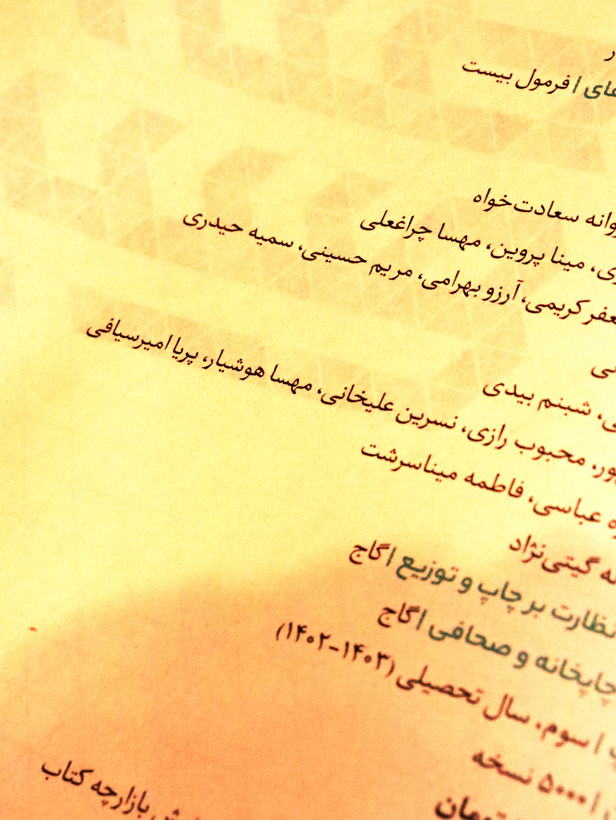 فرمول بیست
سعادت‌خواه
مینا پروین، مهسا چراغعلی
کریمی، آرزو بهرامی، مریم حسینی، سمیه حیدری
شبنم بیدی
محبوب رازی، نسرین علیخانی، مهسا هوشیار، پریا امیرسیافی
عباسی، فاطمه میناسرشت
گیتی‌نژاد
نظارت بر چاپ و توزیع | گاج
چاپخانه و صحافی | گاج
سوم، سال تحصیلی (۱۴۰۳-۱۴۰۲)
۵۰۰۰ نسخه
تومان
بازارچه کتاب